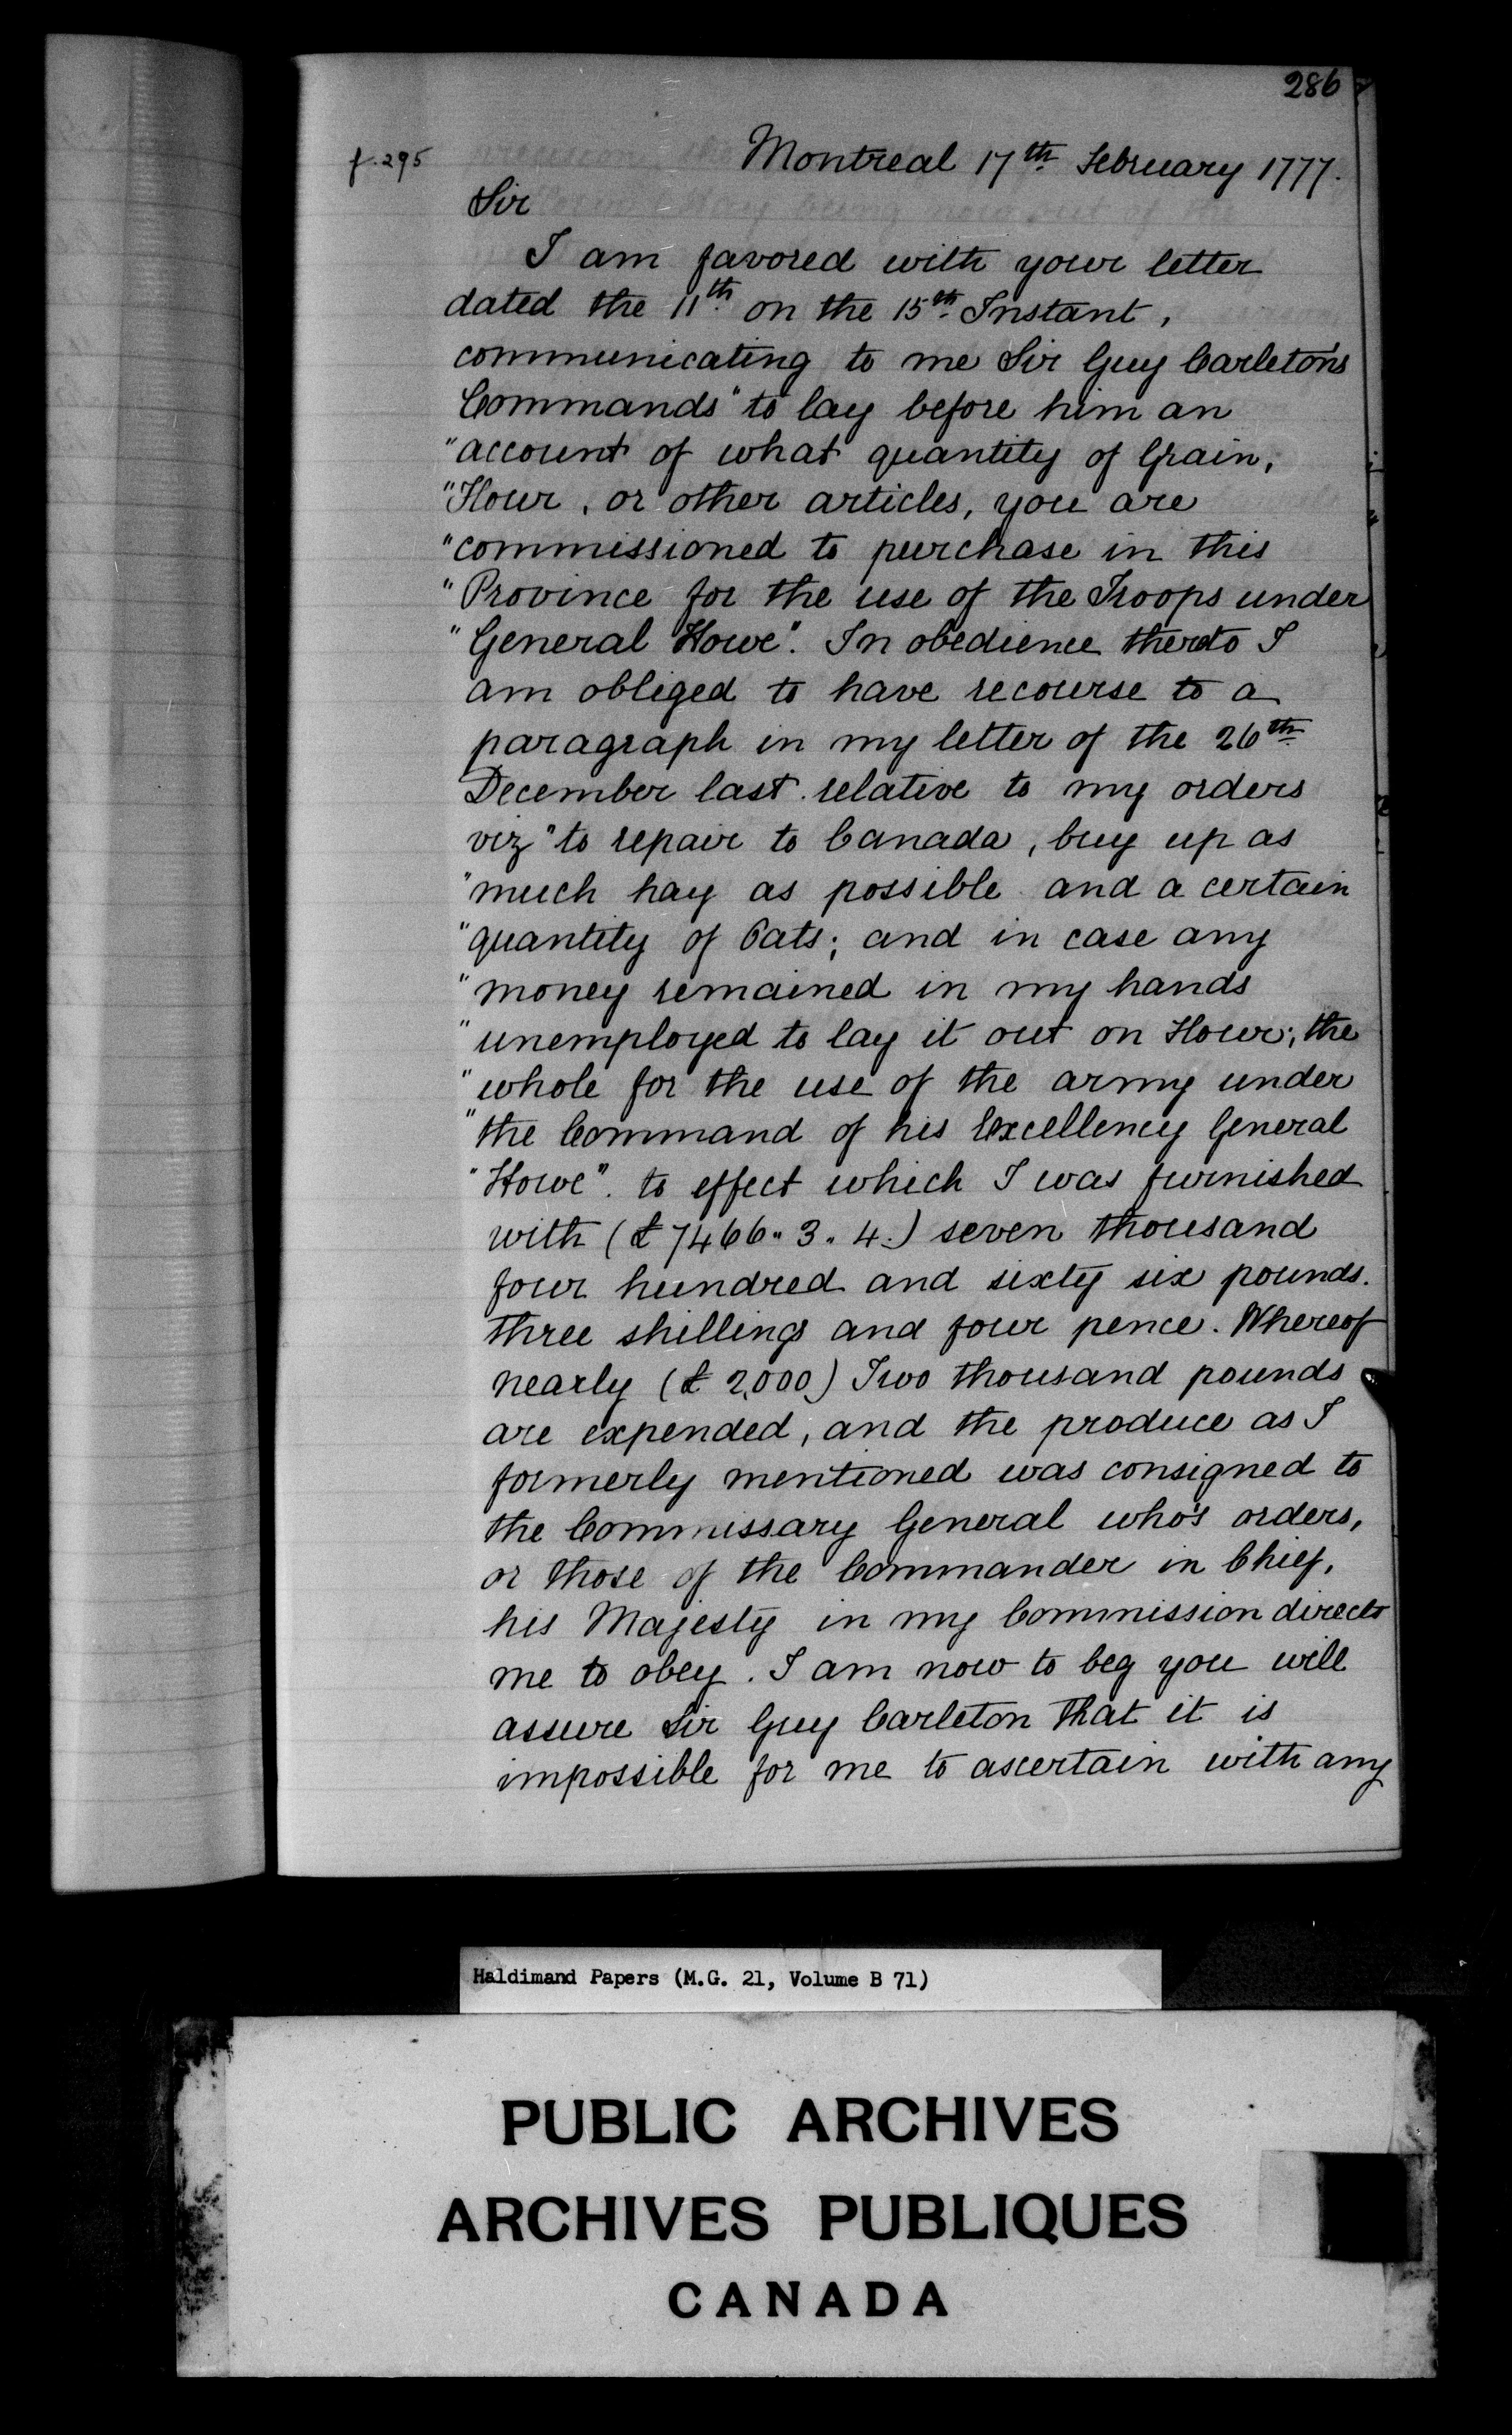 286
f. 295
Montreal 17th February 1777.
Sir
I am favored with your letter
dated the 11th on the 15th Instant,
communicating to me Sir Guy Carleton's
Commands "to lay before him an
"account of what quantity of Grain,
"Flour, or other articles, you are
"commissioned to purchase in this
"Province for the use of the Troops under
"General Howe". In obedience thereto I
am obliged to have recourse to a
paragraph in my letter of the 26th
December last relative to my orders
viz "to repair to Canada, buy up as
"much hay as possible and a certain
"quantity of Oats; and in case any
"money remained in my hands
"unemployed to lay it out on Flour; the
"whole for the use of the army under
"the Command of his Excellency General
"Howe". to effect which I was furnished
with (£7466" 3" 4.) seven thousand
four hundred and sixty six pounds.
three shillings and four pence. Whereof
nearly (£2,000) Two thousand pounds
are expended, and the produce as I
formerly mentioned was consigned to
the Commissary General who's orders,
or those of the Commander in Chief,
his Majesty in my Commission directs
me to obey. I am now to beg you will
assure Sir Guy Carleton that it is
impossible for me to ascertain with any
Haldimand Papers (M.G. 21, Volume B 71)
PUBLIC ARCHIVES
ARCHIVES PUBLIQUES
CANADA